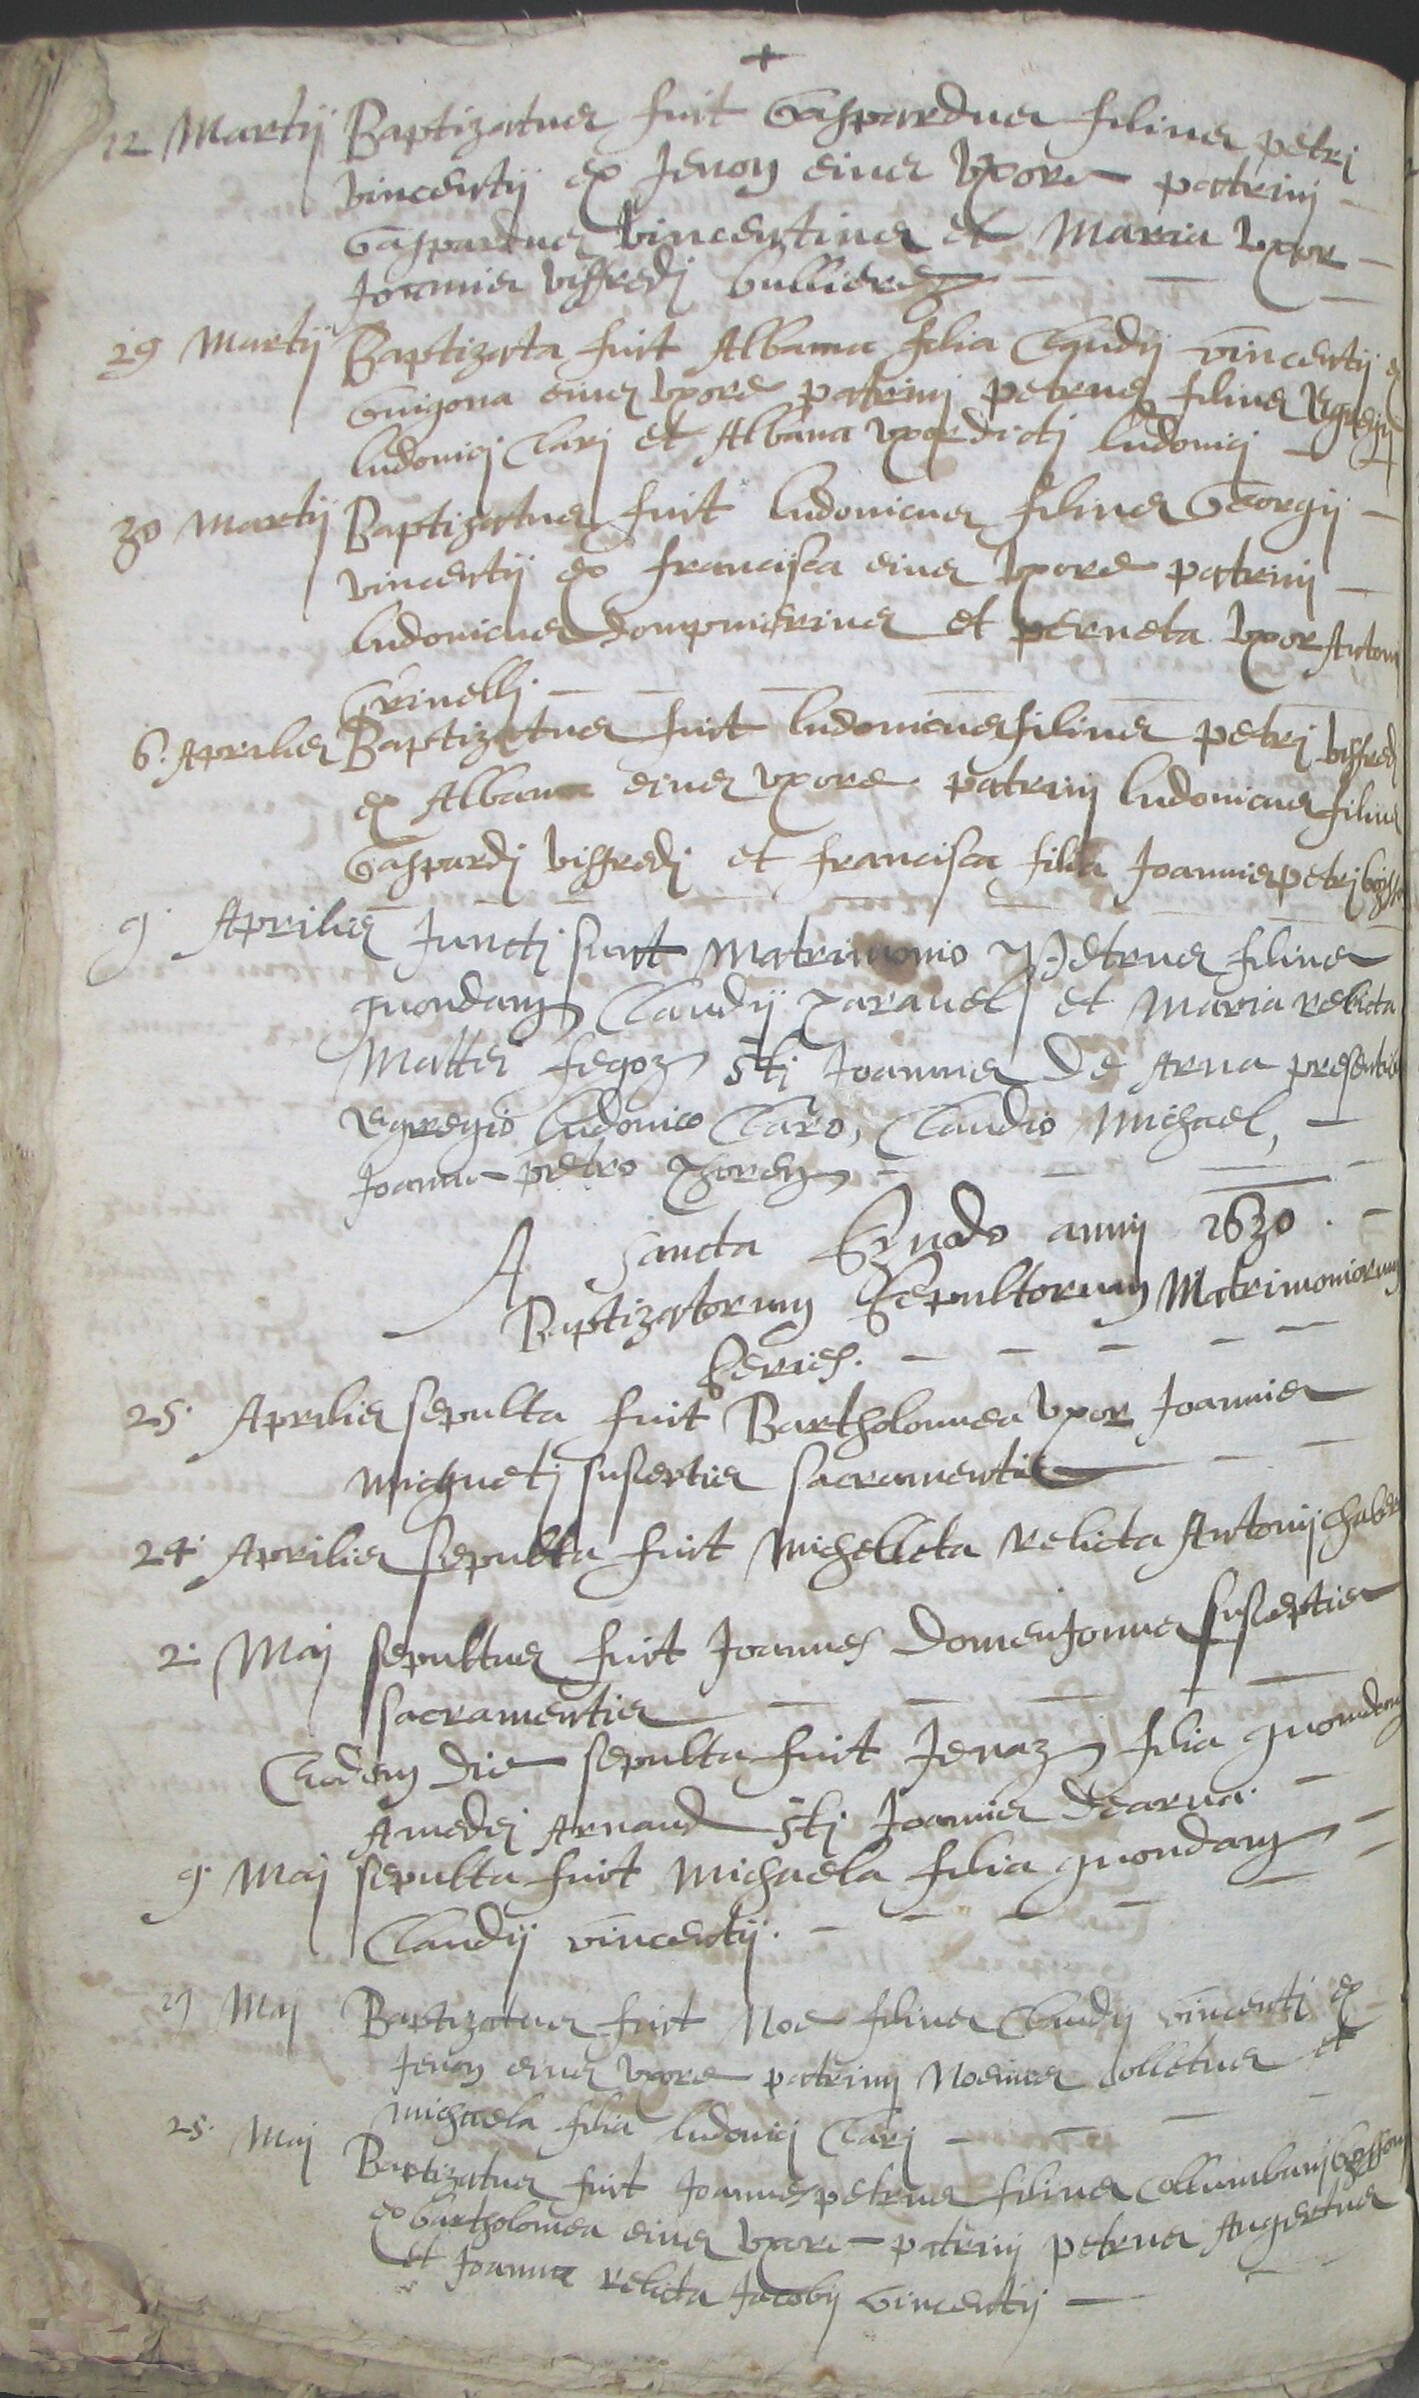 +
12 Martij Baptizatus fuit Gaspardus filius petri
vincentij ex Jenon eius vxore patrini
Gaspardus vincentius et Maria vxor
Joannis viffredi
29 Martij Baptizata fuit Albana filia Claudij vincentij ex
Guigona eius vxore patrini petrus filius Egregij
ludovici Clari et Albana vxor dicti ludovici
30 Martij Baptizatus fuit ludovicus filius Georgij
vincentij ex francisca eius vxore patrini
ludovicus dompnierius et perneta vxor Antonij
Grinelli
6. Aprilis Baptizatus fuit ludovicus filius petri viffredi
ex Albana eius vxore patrini ludovicus filius
Gaspardi viffredi et francisca filia Joannis petri
9 Aprilis Juncti sunt Matrimonio Petrus filius
quondam Claudij paravel et Maria relicta
Mattei fegoz sti Joannis De Arva presentibus
Egregio ludovico Claro, Claudio Michael,
Joanne petro
A sancta Synodo anni 1630.
Baptizatorum Sepultorum Matrimoniorum
Series.
25. Aprilis sepulta fuit Bartholomea vxor Joannis
Michueti susceptis sacramentis
24 Aprilis sepulta fuit Michelleta relicta Antonij
2. Maij sepultus fuit Joannes Domenjonus susceptis
sacramentis
Eadem die sepulta fuit Jenaz filia quondam
Amedei Arnaud sti Joannis Dearva.
9. Maij sepulta fuit Michaela filia quondam
Claudij vincentij.
Maij Baptizatus fuit Noe filius Claudij vincentij ex
Jenon eius vxore patrini Noemus Colletus et
Michaela filia ludovici Clari
25. Maij Baptizatus fuit Joannes petrus filius Collumbani
ex bartholomea eius vxore patrini petrus Augertus
et Joanna relicta Jacobij vincentij